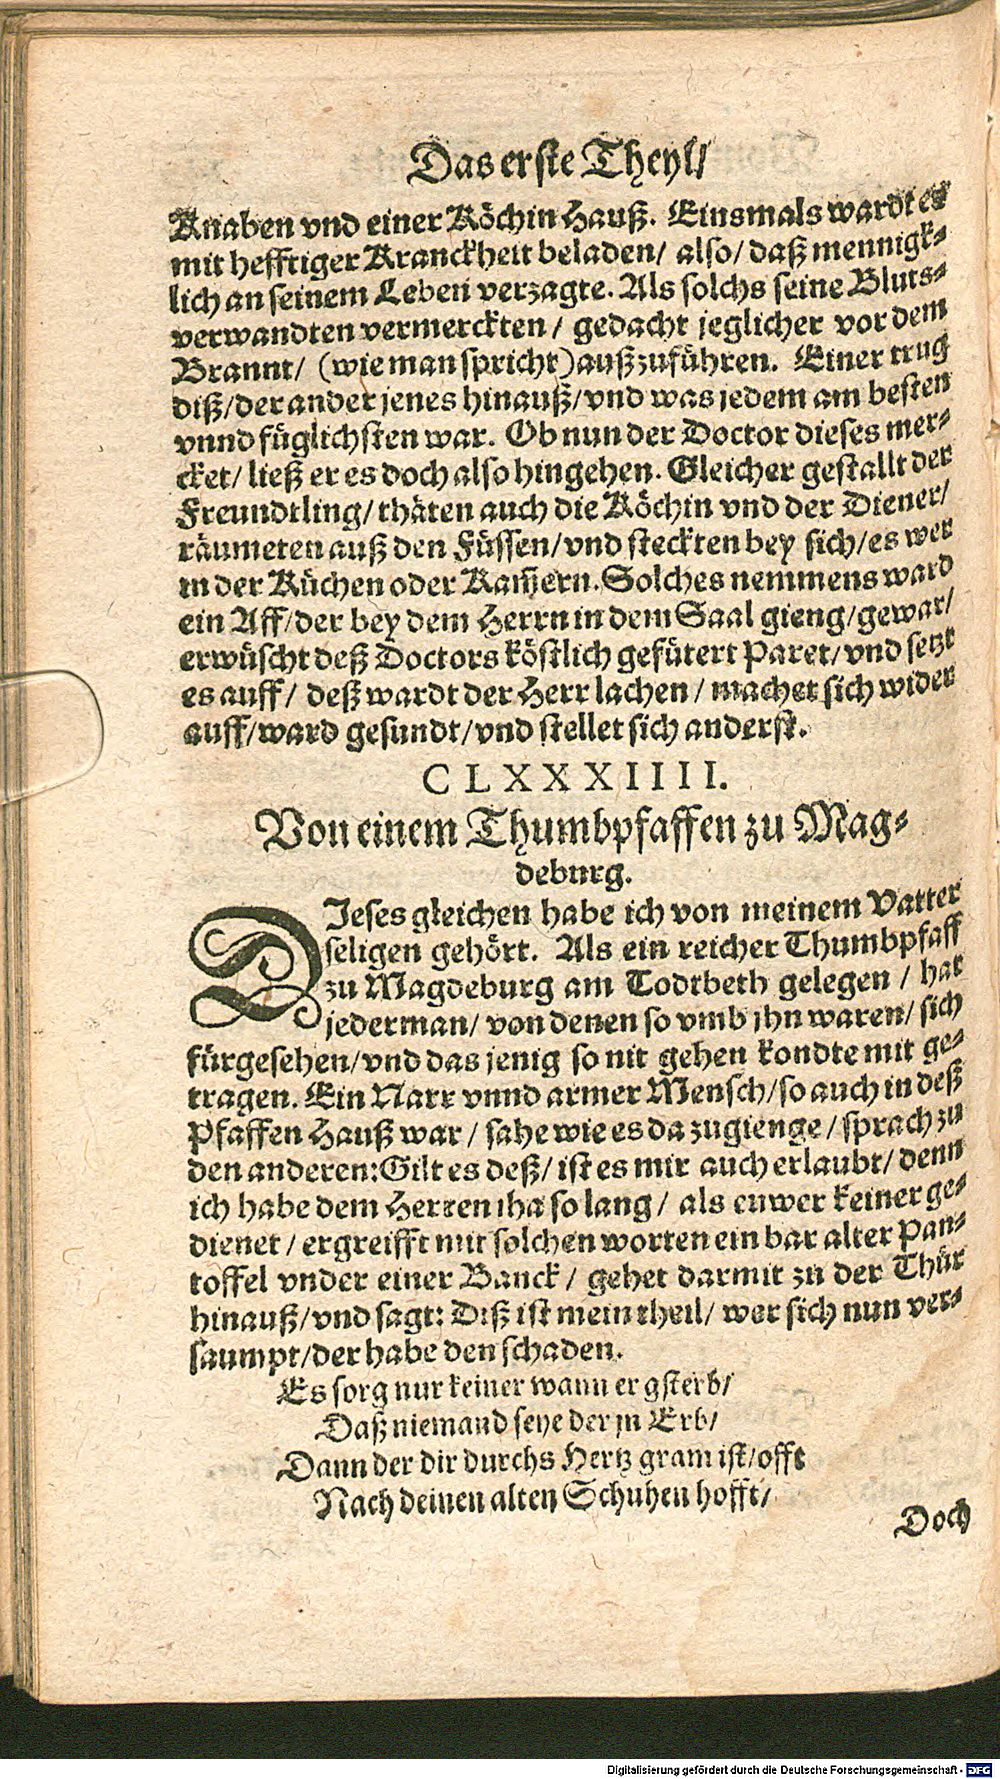 Das erste Theyl/
Knaben vnd einer Köchin Hauß. Einsmals wardt er
mit hefftiger Kranckheit beladen/ also/ daß mennigk-
lich an seinem Leben verzagte. Als solchs seine Bluts-
verwandten vermerckten/ gedacht jeglicher vor dem
Brannt/ (wie man spricht) außzuführen. Einer trug
diß/ der ander jenes hinauß/ vnd was jedem am besten
vnnd füglichsten war. Ob nun der Doctor dieses mer-
cket/ ließ er es doch also hingehen. Gleicher gestallt der
Freundtling/ thäten auch die Köchin vnd der Diener/
räumeten auß den Füssen/ vnd steckten bey sich/ es wer
in der Küchen oder Kam̃ern. Solches nemmens ward
ein Aff/ der bey dem Herrn in dem Saal gieng/ gewar/
erwüscht deß Doctors köstlich gefütert Paret/ vnd setzt
es auff/ deß wardt der Herr lachen/ machet sich wider
auff/ ward gesundt/ vnd stellet sich anderst.
CLXXXIIII.
Von einem Thumbpfaffen zu Mag-
deburg.
DJeses gleichen habe ich von meinem Vatter
seligen gehört. Als ein reicher Thumbpfaff
zu Magdeburg am Todtbeth gelegen/ hat
jederman/ von denen so vmb jhn waren/ sich
fürgesehen/ vnd das jenig so nit gehen kondte mit ge-
tragen. Ein Narr vnnd armer Mensch/ so auch in deß
Pfaffen Hauß war/ sahe wie es da zugienge/ sprach zu
den anderen: Gilt es deß/ ist es mir auch erlaubt/ denn
ich habe dem Herren jha so lang/ als euwer keiner ge-
dienet/ ergreifft mit solchen worten ein bar alter Pan-
toffel vnder einer Banck/ gehet darmit zu der Thür
hinauß/ vnd sagt: Diß ist mein theil/ wer sich nun ver-
saumpt/ der habe den schaden.
Es sorg nur keiner wann er gsterb/
Daß niemand seye der jn Erb/
Dann der dir durchs Hertz gram ist/ offt
Nach deinen alten Schuhen hofft/
Doch
Digitalisierung gefördert durch die Deutsche Forschungsgemeinschaft - DFG